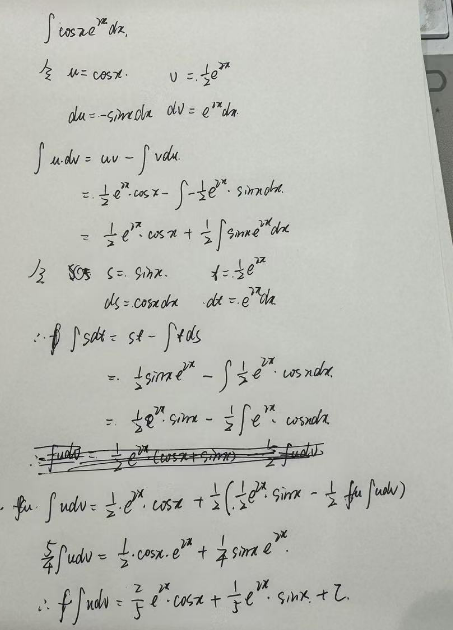 ∫ cosx e^{2x} dx.
令 u = cosx. v = ½e^{2x}
du = -sinx dx dv = e^{2x} dx.
∫ u·dv = uv - ∫ v du.
= ½e^{2x}·cosx - ∫ -½e^{2x}·sinx dx.
= ½e^{2x}·cosx + ½∫ sinx e^{2x} dx
令 s = sinx. t = ½e^{2x}
ds = cosx dx dt = e^{2x} dx.
∴ ∫ s dt = st - ∫ t ds
= ½ sinx e^{2x} - ∫ ½e^{2x}·cosx dx.
= ½e^{2x}·sinx - ½∫ e^{2x}·cosx dx
∫ u dv = ½·e^{2x}·cosx + ½(½e^{2x}·sinx - ½ ∫ u dv)
5/4 ∫ u dv = ½·cosx·e^{2x} + ¼ sinx e^{2x}.
∴ ∫ u dv = 2/5 e^{2x}·cosx + 1/5 e^{2x}·sinx + C.